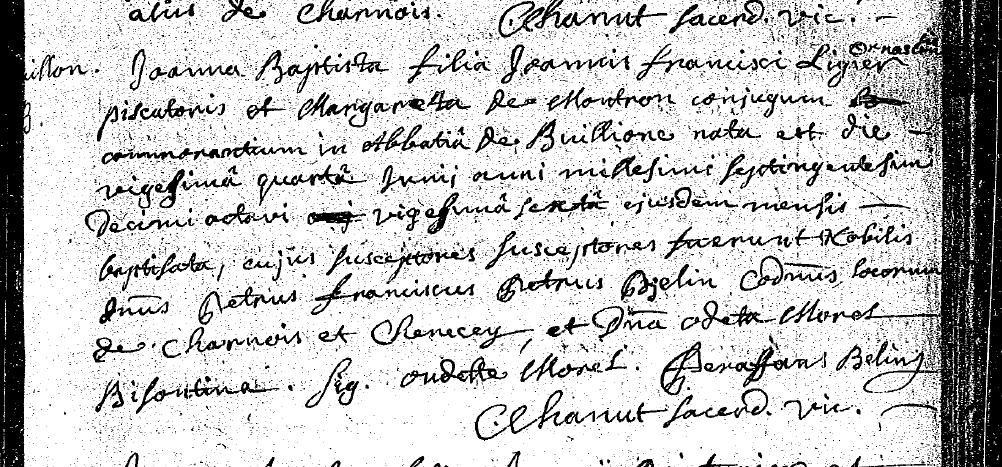 alius de Charnois. CChanut sacerd. vic. —
uillon. Joanna Baptista filia Joannis Francisci Ligier
piscatoris et Margareta de Montron conjugum
commorantium in Abbatiâ de Buillione nata est die —
vigesimâ quartâ Junij anni millesimi septingentesimi
Decimi octavi vigesimâ sextâ ejusdem mensis —
baptisata, cujus susceptores susceptores fuerunt Nobilis
dnus Petrus franciscus Petrus Belin Codnus locorum
de Charnois et Chenecey, et Dña odeta Moret
Bisontina. sig. oudette Moret. Belin
CChanut sacerd. vic. —